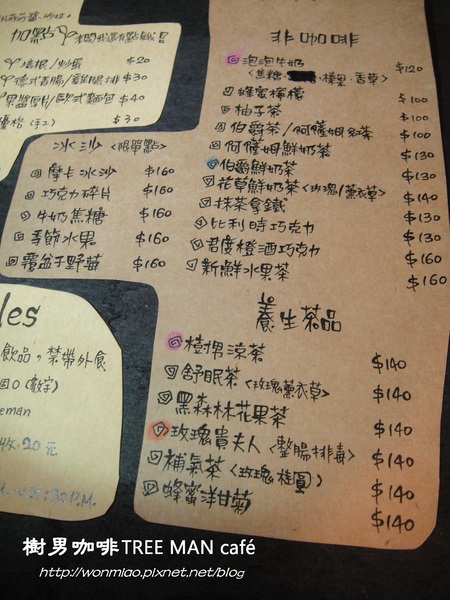 加點
培根/炒蛋 $20
德式香腸/雞腿排 $30
果醬厚片/歐式麵包 $40
優格(手工) $30
冰沙 <限單點>
摩卡冰沙 $160
巧克力碎片 $160
牛奶焦糖 $160
季節水果 $160
覆盆子野莓 $160
les
飲品，禁帶外食
eman
20元
非咖啡
泡泡牛奶 $120
<焦糖・榛果・香草>
蜂蜜檸檬 $100
柚子茶 $100
伯爵茶/阿薩姆紅茶 $100
阿薩姆鮮奶茶 $130
伯爵鮮奶茶 $130
花草鮮奶茶<玫瑰/薰衣草> $140
抹茶拿鐵 $130
比利時巧克力 $130
君度橙酒巧克力 $160
新鮮水果茶 $160
養生茶品
樹男涼茶 $140
舒眠茶<玫瑰薰衣草> $140
黑森林花果茶 $140
玫瑰貴夫人<整腸排毒> $140
補氣茶<玫瑰桂圓> $140
蜂蜜洋甘菊 $140
樹男咖啡TREE MAN café
http://wonmiao.pixnet.net/blog